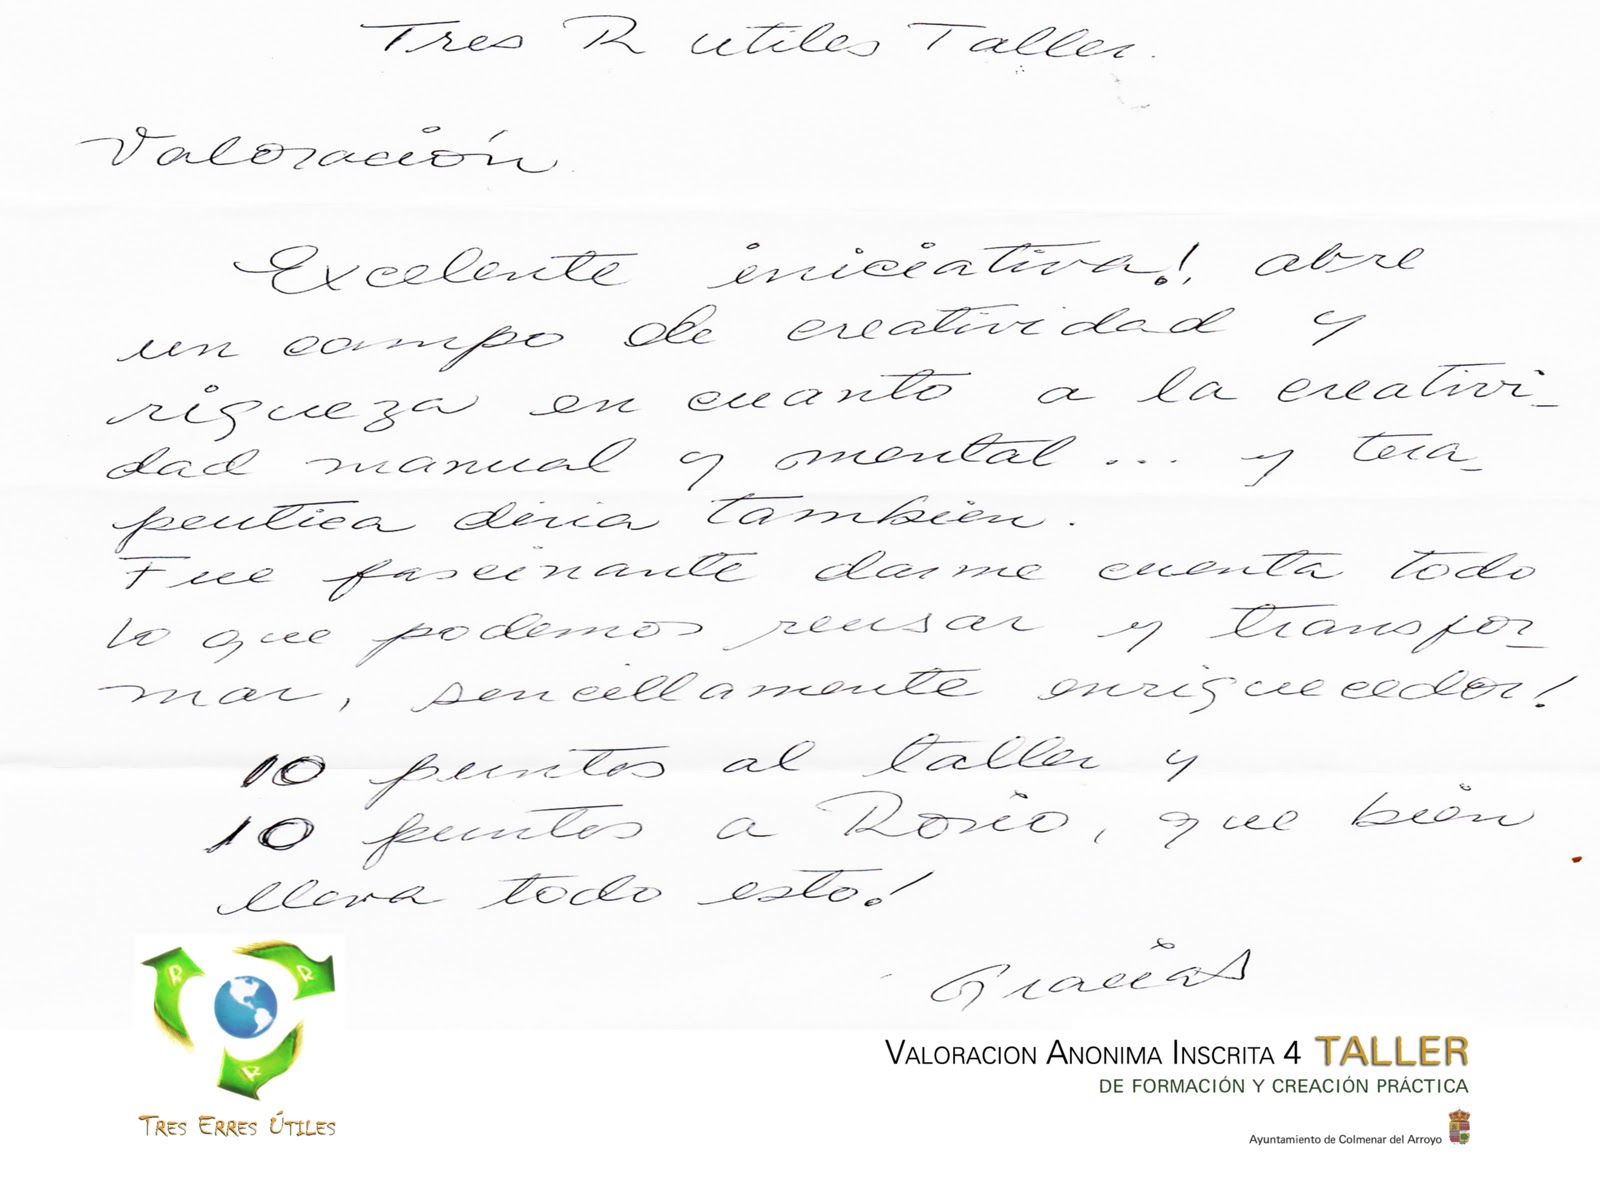 Tres R utiles Taller.
Valoración
Excelente iniciativa!, abre
un campo de creatividad y
riqueza en cuanto a la creativi-
dad manual y mental... y tera-
peutica diria tambien.
Fue fascinante darme cuenta todo
lo que podemos reusar y transfor-
mar, sencillamente enriquecedor!
10 puntos al taller y
10 puntos a Rosio, que bien
lleva todo esto!
Gracias
R R R
TRES ERRES ÚTILES
VALORACION ANONIMA INSCRITA 4 TALLER
DE FORMACIÓN Y CREACIÓN PRÁCTICA
Ayuntamiento de Colmenar del Arroyo